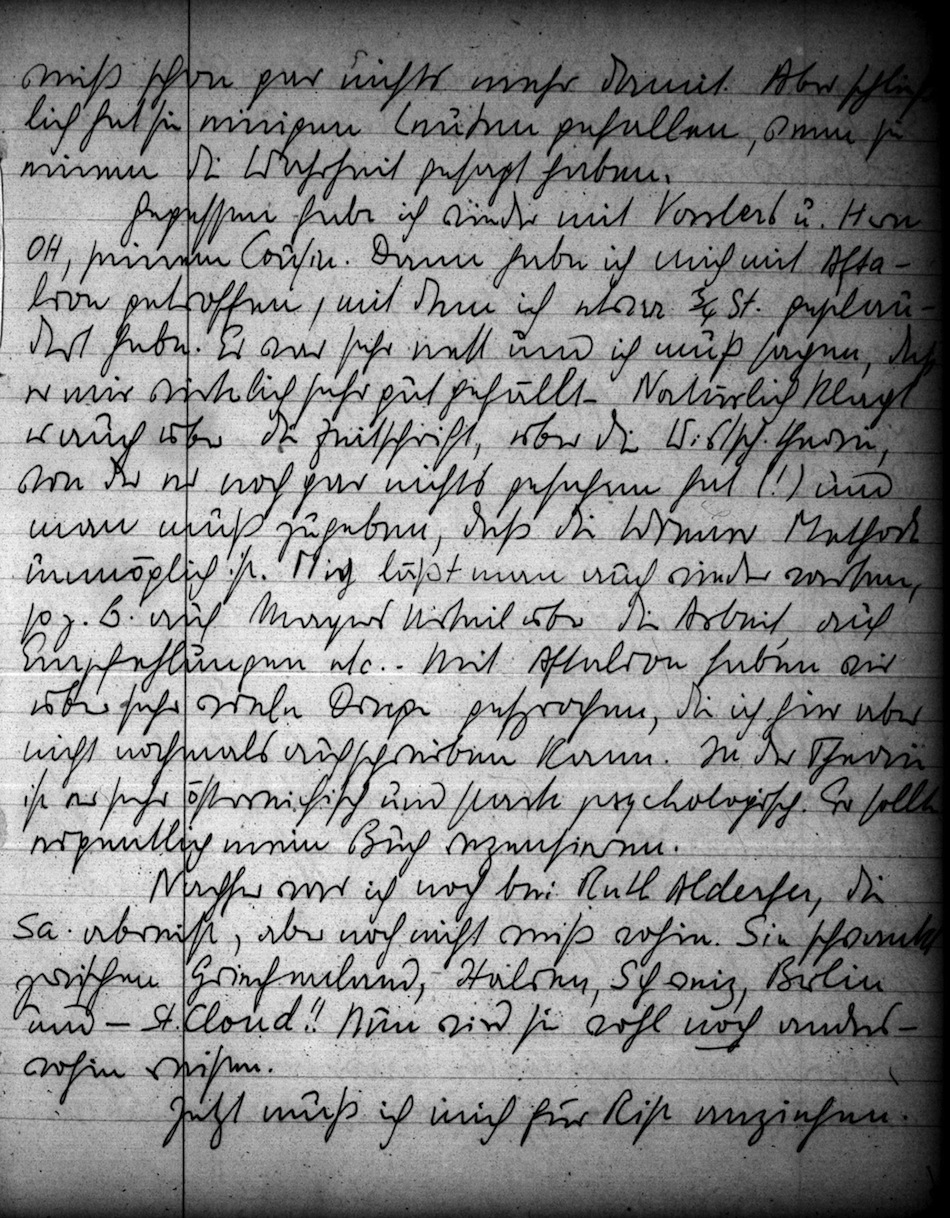 weiß schon gar nichts mehr damit. Aber schließ-
lich hat sie einigen Leuten gefallen, denn sie
einem die Wahrheit gesagt haben.
Gegessen habe ich wieder mit Vorslers u. Herrn
OH, seinem Cousin. Dann habe ich mich mit Afta-
lion getroffen, mit dem ich etwa ¾ St. geplau-
dert habe. Er war sehr nett und ich muß sagen, daß
er mir wirklich sehr gut gefällt. Natürlich klagt
er auch über die Zeitschrift, über die Wirtsch.theorie,
von der er noch gar nichts gesehen hat (!) und
man muß zugeben, daß die Wiener Methode
unmöglich ist. Mich läßt man auch wieder warten,
so z. B. auf Mayers Urteil über die Arbeit, auf
Empfehlungen etc.. Mit Aftalion haben wir
über sehr viele Dinge gesprochen, die ich hier aber
nicht nochmals aufschreiben kann. In der Theorie
ist er sehr österreichisch und stark psychologisch. Er sollte
eigentlich mein Buch rezensieren.
Nachher war ich noch bei Ruth Alderfer, die
Sa. abreist, aber noch nicht weiß wohin. Sie schwankt
zwischen Griechenland, Italien, Schweiz, Berlin
und – St. Cloud!! Nun wird sie wohl noch anders-
wohin reisen.
Jetzt muß ich mich für Rist anziehen.